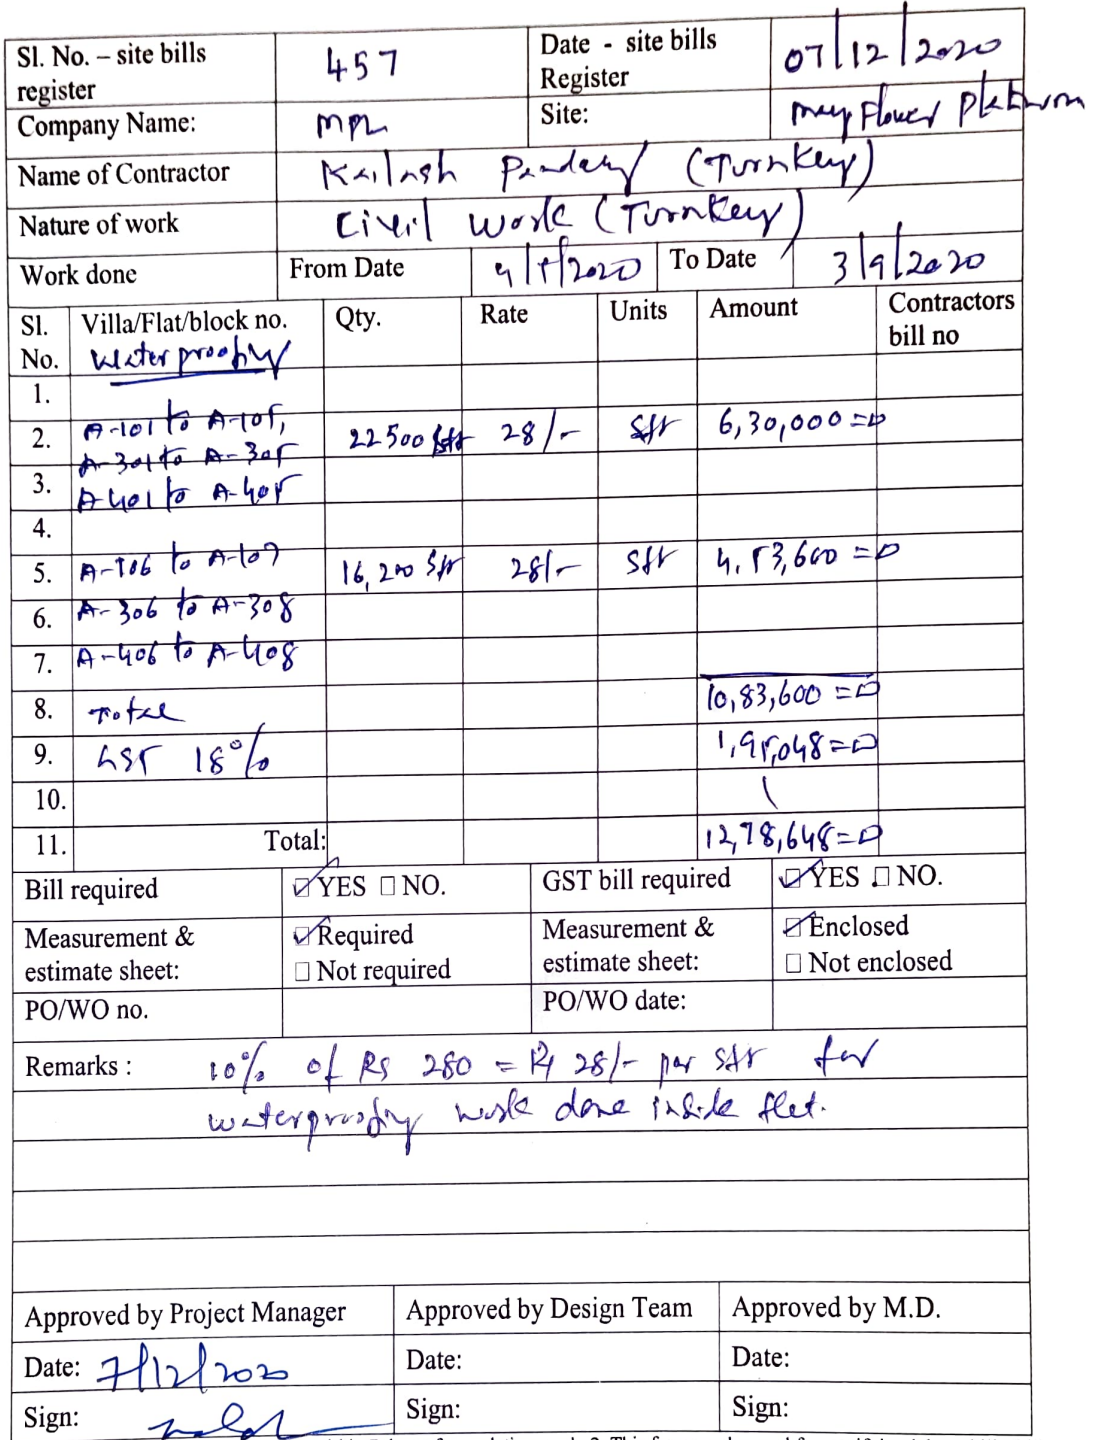 Sl. No. – site bills register 457 Date - site bills Register 07/12/2020
Company Name: MPL Site: May Flower Platinum
Name of Contractor Kailash Pandey (Turnkey)
Nature of work Civil Work (Turnkey)
Work done From Date To Date 3/9/2020
Sl. No. Villa/Flat/block no. Qty. Rate Units Amount Contractors bill no
Waterproofing
1.
A-101 to A-105,
2. 22500 sft 28/- sft 6,30,000=0
A-301 to A-305
3. A-401 to A-405
4.
5. A-106 to A-107 16,200 sft 28/- sft 4,53,600=0
6. A-306 to A-308
7. A-406 to A-408
8. Total 10,83,600=0
9. GST 18% 1,95,048=0
10.
11. Total: 12,78,648=0
Bill required YES NO. GST bill required YES NO.
Measurement & estimate sheet: Required Not required Measurement & estimate sheet: Enclosed Not enclosed
PO/WO no. PO/WO date:
Remarks : 10% of Rs 280 = Rs 28/- per sft for
waterproofing work done inside flat.
Approved by Project Manager Approved by Design Team Approved by M.D.
Date: 7/12/2020 Date: Date:
Sign: Sign: Sign: